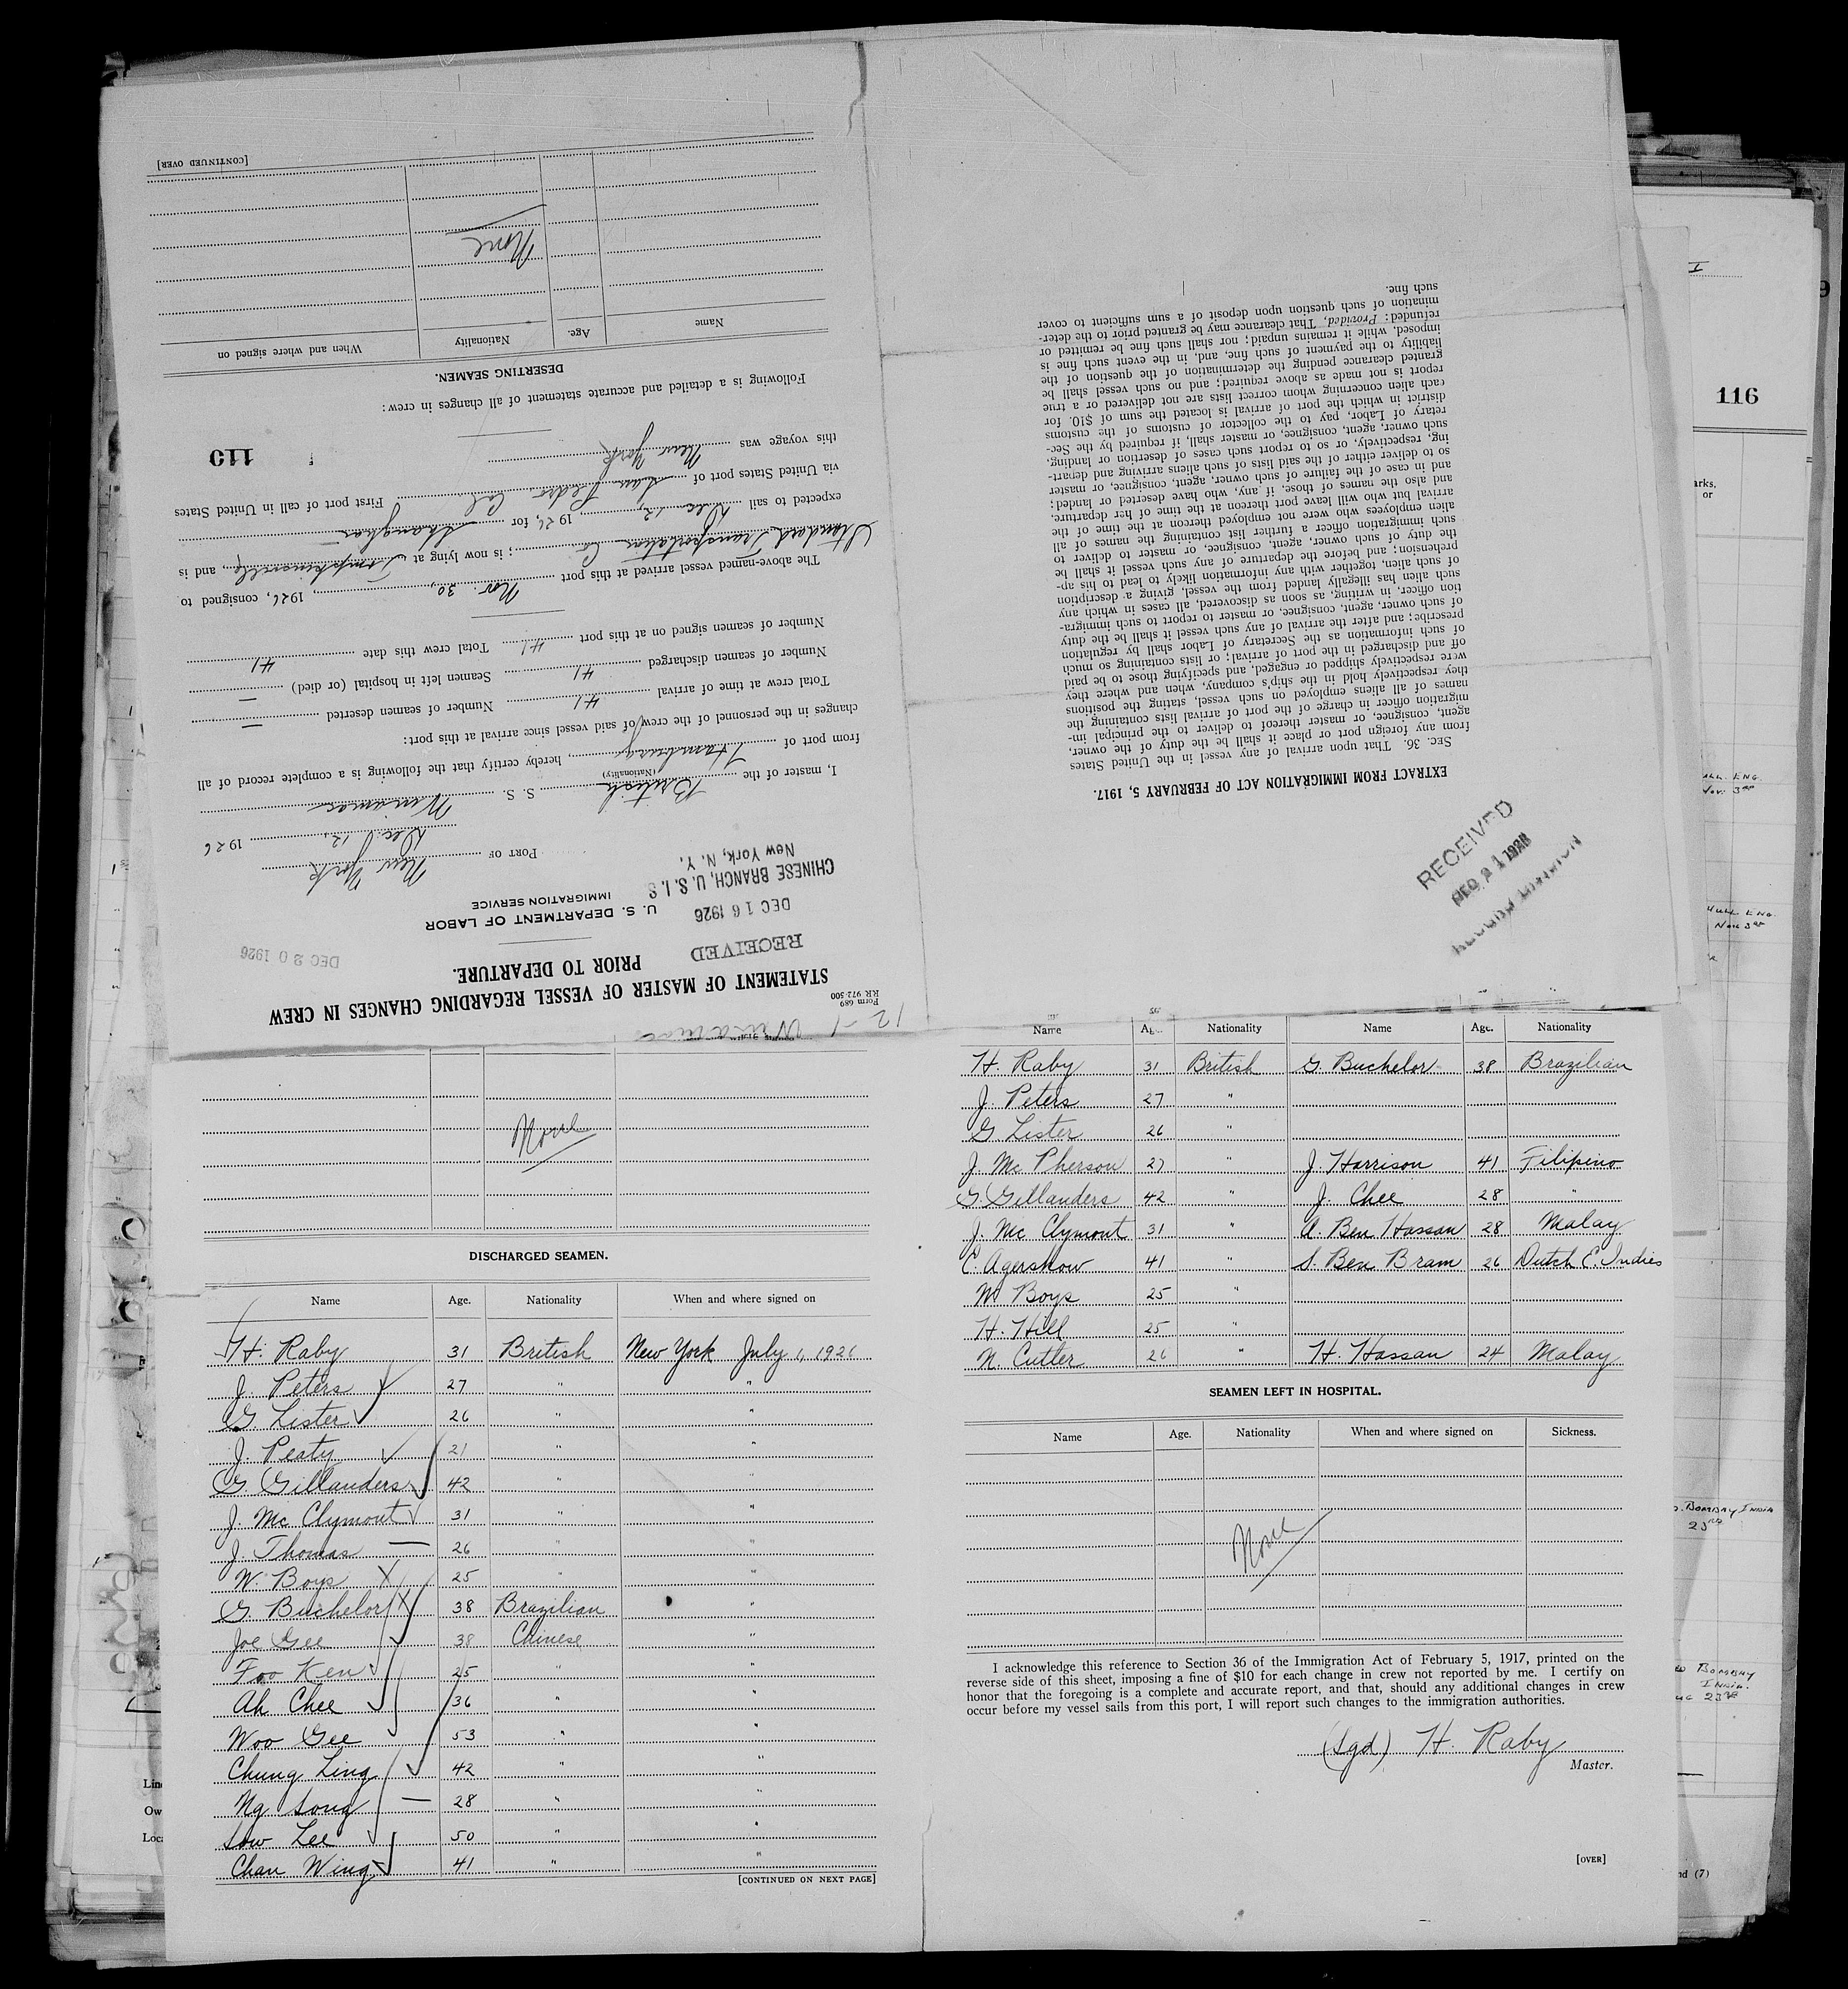 12-1
Form 689
RR 972-500
STATEMENT OF MASTER OF VESSEL REGARDING CHANGES IN CREW
PRIOR TO DEPARTURE.
RECEIVED
DEC 16 1926
CHINESE BRANCH, U. S. I. S
New York, N. Y.
DEC 20 1926
U. S. DEPARTMENT OF LABOR
IMMIGRATION SERVICE
PORT OF New York
Dec. 12, 1926
I, master of the British S. S. Winamac
(Nationality)
from port of Hamburg, hereby certify that the following is a complete record of all
changes in the personnel of the crew of said vessel since arrival at this port:
Total crew at time of arrival 41 Number of seamen deserted —
Number of seamen discharged 41 Seamen left in hospital (or died) —
Number of seamen signed on at this port 41 Total crew this date 41
The above-named vessel arrived at this port Nov. 30, 1926, consigned to
Standard Transportation Co; is now lying at Tompkinsville, and is
expected to sail Dec 12, 1926, for Shanghai
via United States port of San Pedro Cal. First port of call in United States
this voyage was New York
115
Following is a detailed and accurate statement of all changes in crew:
DESERTING SEAMEN.
Name Age. Nationality When and where signed on
None
[CONTINUED OVER]
RECEIVED
DEC 21 1926
RECORD DIVISION
EXTRACT FROM IMMIGRATION ACT OF FEBRUARY 5, 1917.
SEC. 36. That upon arrival of any vessel in the United States
from any foreign port or place it shall be the duty of the owner,
agent, consignee, or master thereof to deliver to the principal im-
migration officer in charge of the port of arrival lists containing the
names of all aliens employed on such vessel, stating the positions
they respectively hold in the ship's company, when and where they
were respectively shipped or engaged, and specifying those to be paid
off and discharged in the port of arrival; or lists containing so much
of such information as the Secretary of Labor shall by regulation
prescribe; and after the arrival of any such vessel it shall be the duty
of such owner, agent, consignee, or master to report to such immigra-
tion officer, in writing, as soon as discovered, all cases in which any
such alien has illegally landed from the vessel, giving a description
of such alien, together with any information likely to lead to his ap-
prehension; and before the departure of any such vessel it shall be
the duty of such owner, agent, consignee, or master to deliver to
such immigration officer a further list containing the names of all
alien employees who were not employed thereon at the time of the
arrival but who will leave port thereon at the time of her departure,
and also the names of those, if any, who have deserted or landed;
and in case of the failure of such owner, agent, consignee, or master
so to deliver either of the said lists of such aliens arriving and depart-
ing, respectively, or so to report such cases of desertion or landing,
such owner, agent, consignee, or master shall, if required by the Sec-
retary of Labor, pay to the collector of customs of the customs
district in which the port of arrival is located the sum of $10. for
each alien concerning whom correct lists are not delivered or a true
report is not made as above required; and no such vessel shall be
granted clearance pending the determination of the question of the
liability to the payment of such fine, and, in the event such fine is
imposed, while it remains unpaid; nor shall such fine be remitted or
refunded: Provided, That clearance may be granted prior to the deter-
mination of such question upon deposit of a sum sufficient to cover
such fine.
None
DISCHARGED SEAMEN.
Name Age. Nationality When and where signed on
H. Raby 31 British New York July 1, 1926
J. Peters 27 " "
G. Lister 26 " "
J. Peaty 21 " "
G. Gillanders 42 " "
J. Mc Clymont 31 " "
J. Thomas 26 " "
W. Boys 25 " "
G. Buchelor 38 Brazilian "
Joe Gee 38 Chinese "
Foo Ken 25 " "
Ah Chee 36 " "
Woo Gee 53 " "
Chung Ling 42 " "
Ng Song 28 " "
Sow Lee 50 " "
Chan Wing 41 " "
[CONTINUED ON NEXT PAGE]
Name Age. Nationality Name Age. Nationality
H. Raby 31 British G. Buchelor 38 Brazilian
J. Peters 27 "
G Lister 26 "
J. Mc Pherson 27 " J. Harrison 41 Filipino
G. Gillanders 42 " J. Chee 28 "
J. Mc Clymont 31 " A. Ben Hassan 28 Malay
C. Agerskow 41 S. Ben Bram 26 Dutch E. Indies
W Boys 25 "
H. Hill 25 "
N. Cutler 26 " H. Hassan 24 Malay
SEAMEN LEFT IN HOSPITAL.
Name Age. Nationality When and where signed on Sickness.
None
I acknowledge this reference to Section 36 of the Immigration Act of February 5, 1917, printed on the
reverse side of this sheet, imposing a fine of $10 for each change in crew not reported by me. I certify on
honor that the foregoing is a complete and accurate report, and that, should any additional changes in crew
occur before my vessel sails from this port, I will report such changes to the immigration authorities.
(Sgd) H. Raby
Master.
[OVER]
116
arks,
or
HULL ENG.
Nov 3rd
BOMBAY INDIA
23RD
BOMBAY
INDIA.
23RD
nd (7)
Line
Ow
Loca